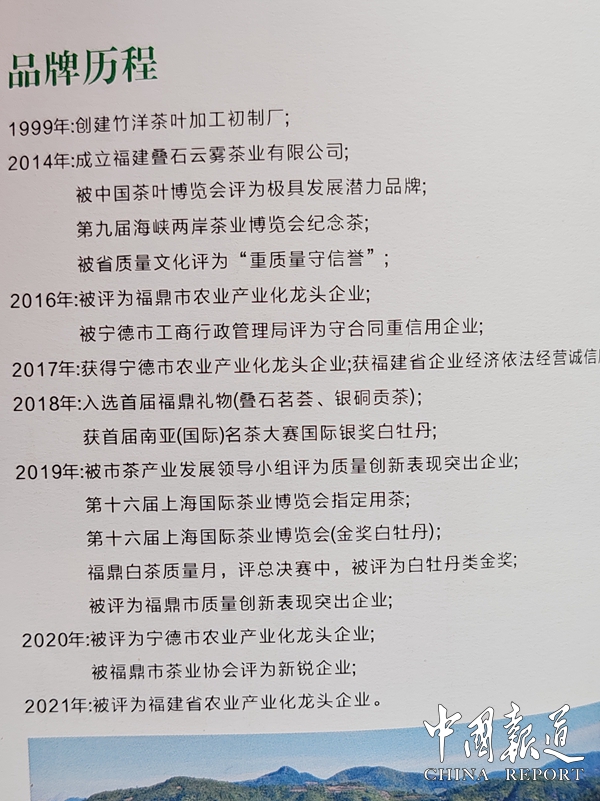 品牌历程
1999年:创建竹洋茶叶加工初制厂;
2014年:成立福建叠石云雾茶业有限公司;
被中国茶叶博览会评为极具发展潜力品牌;
第九届海峡两岸茶业博览会纪念茶;
被省质量文化评为“重质量守信誉”;
2016年:被评为福鼎市农业产业化龙头企业;
被宁德市工商行政管理局评为守合同重信用企业;
2017年:获得宁德市农业产业化龙头企业;获福建省企业经济依法经营诚信
2018年:入选首届福鼎礼物(叠石茗荟、银硐贡茶);
获首届南亚(国际)名茶大赛国际银奖白牡丹;
2019年:被市茶产业发展领导小组评为质量创新表现突出企业;
第十六届上海国际茶业博览会指定用茶;
第十六届上海国际茶业博览会(金奖白牡丹);
福鼎白茶质量月，评总决赛中，被评为白牡丹类金奖;
被评为福鼎市质量创新表现突出企业;
2020年:被评为宁德市农业产业化龙头企业;
被福鼎市茶业协会评为新锐企业;
2021年:被评为福建省农业产业化龙头企业。
中国报道
CHINA REPORT